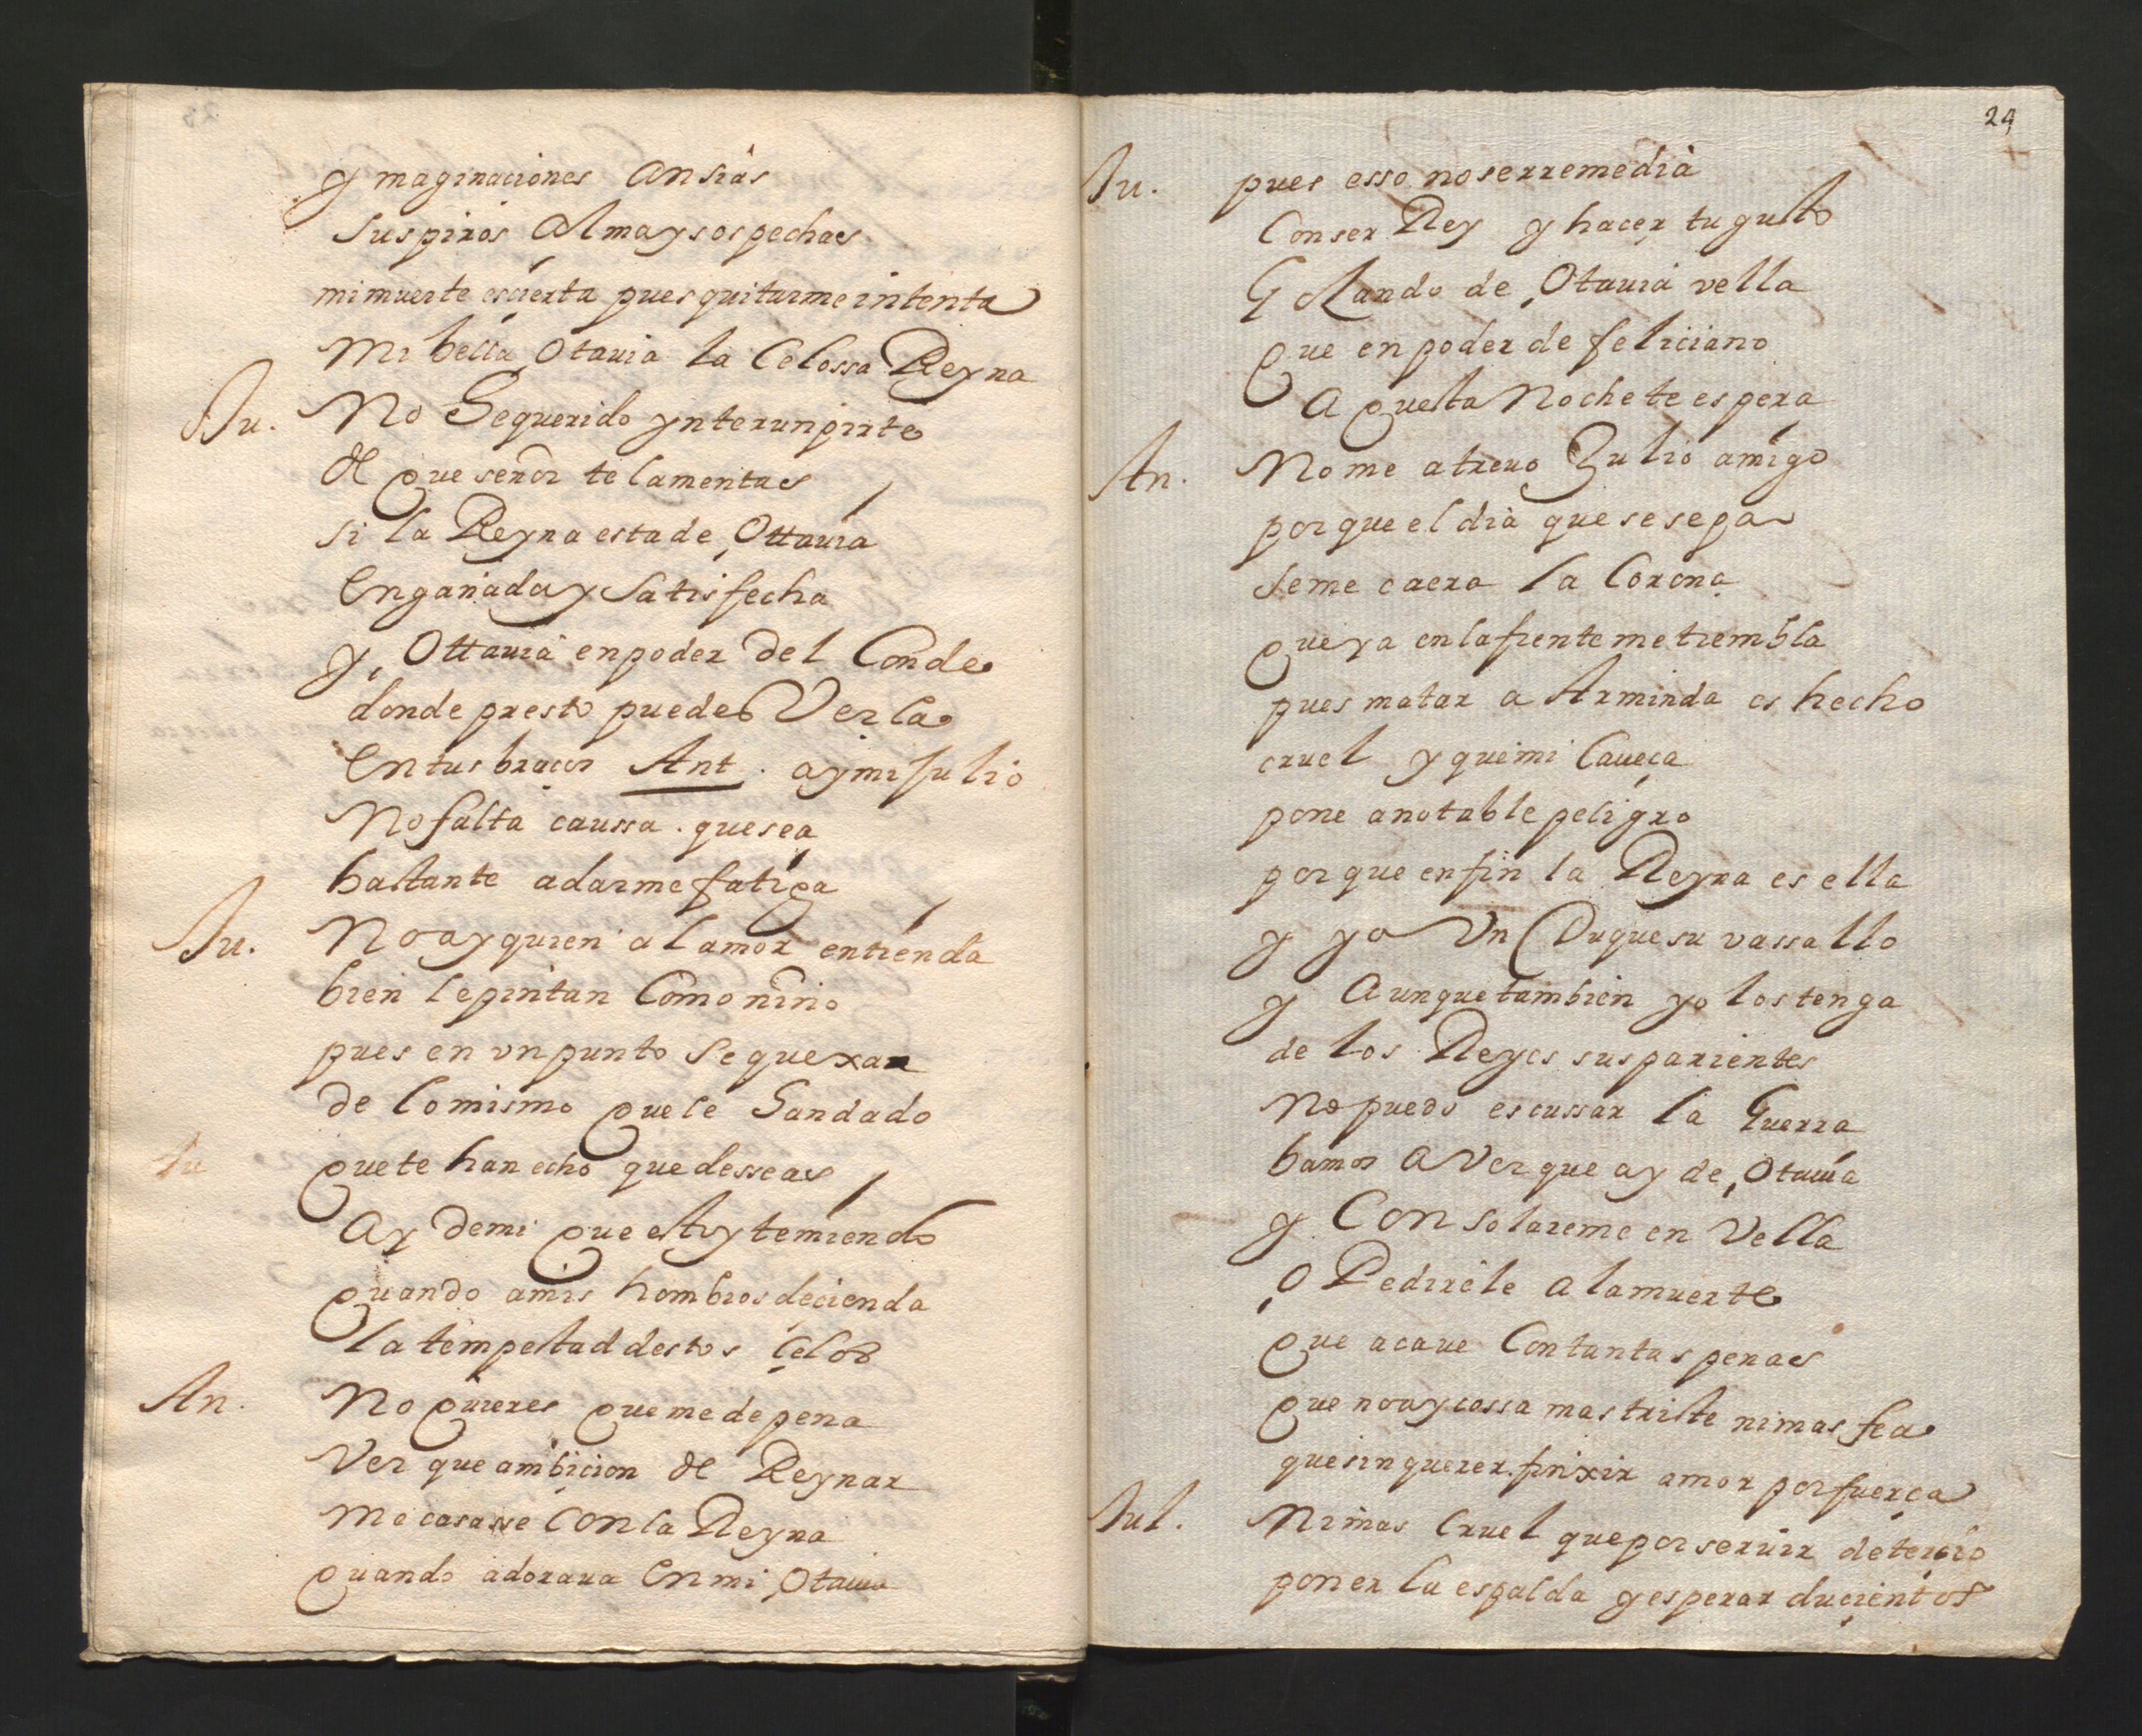 y maginaciones ansias
suspiros Alma y sospechas
mi muerte es cierta pues quitarme intenta
Mi bella Otauia la Celossa Reyna
Ju. No Sequerido ynterunpirte
de que señor te lamentas
si la Reyna esta de Ottauia
Engañada y Satisfecha
y Ottauia en poder del Conde
donde presto puedes Verla
En tus braços Ant. ay mi Julio
No falta caussa. que sea
bastante a darme fatiga
Ju. No ay quien al amor entienda
bien le pintan Como niño
pues en vn punto se quexa
de lo mismo que le Sandado
Ju que te han echo que desseas
Ay de mi que estoy temiendo
quando a mis hombros decienda
la tempestad destos çelos
An. No quieres que me de pena
Ver que ambicion de Reynar
Me casasse Con la Reyna
quando adoraua En mi Otauia
24
Ju. pues esso no se rremedia
Con ser Rey y hacer tu gusto
Goçando de Otauia vella
que en poder de feliciano
Aquesta Noche te espera
An. No me atreuo Julio amigo
por que el dia que se sepa
se me caera la Corona
que ya en la frente me tiembla
pues matar a Arminda es hecho
cruel y que mi Caueça
pone a notable peligro
por que en fin la Reyna es ella
y yo Vn Duque su vassallo
y Aunque tambien yo los tenga
de los Reyes sus parientes
No puedo escussar la Guerra
bamos A Ver que ay de Otauia
y Consolareme en Vella
o Pedirele a la muerte
que acaue Con tantas penas
que no ay cossa mas triste ni mas fea
que sin querer. finxir amor por fuerça
Jul. Ni mas Cruel que por seruir de tercio
poner la espalda y esperar duçientos